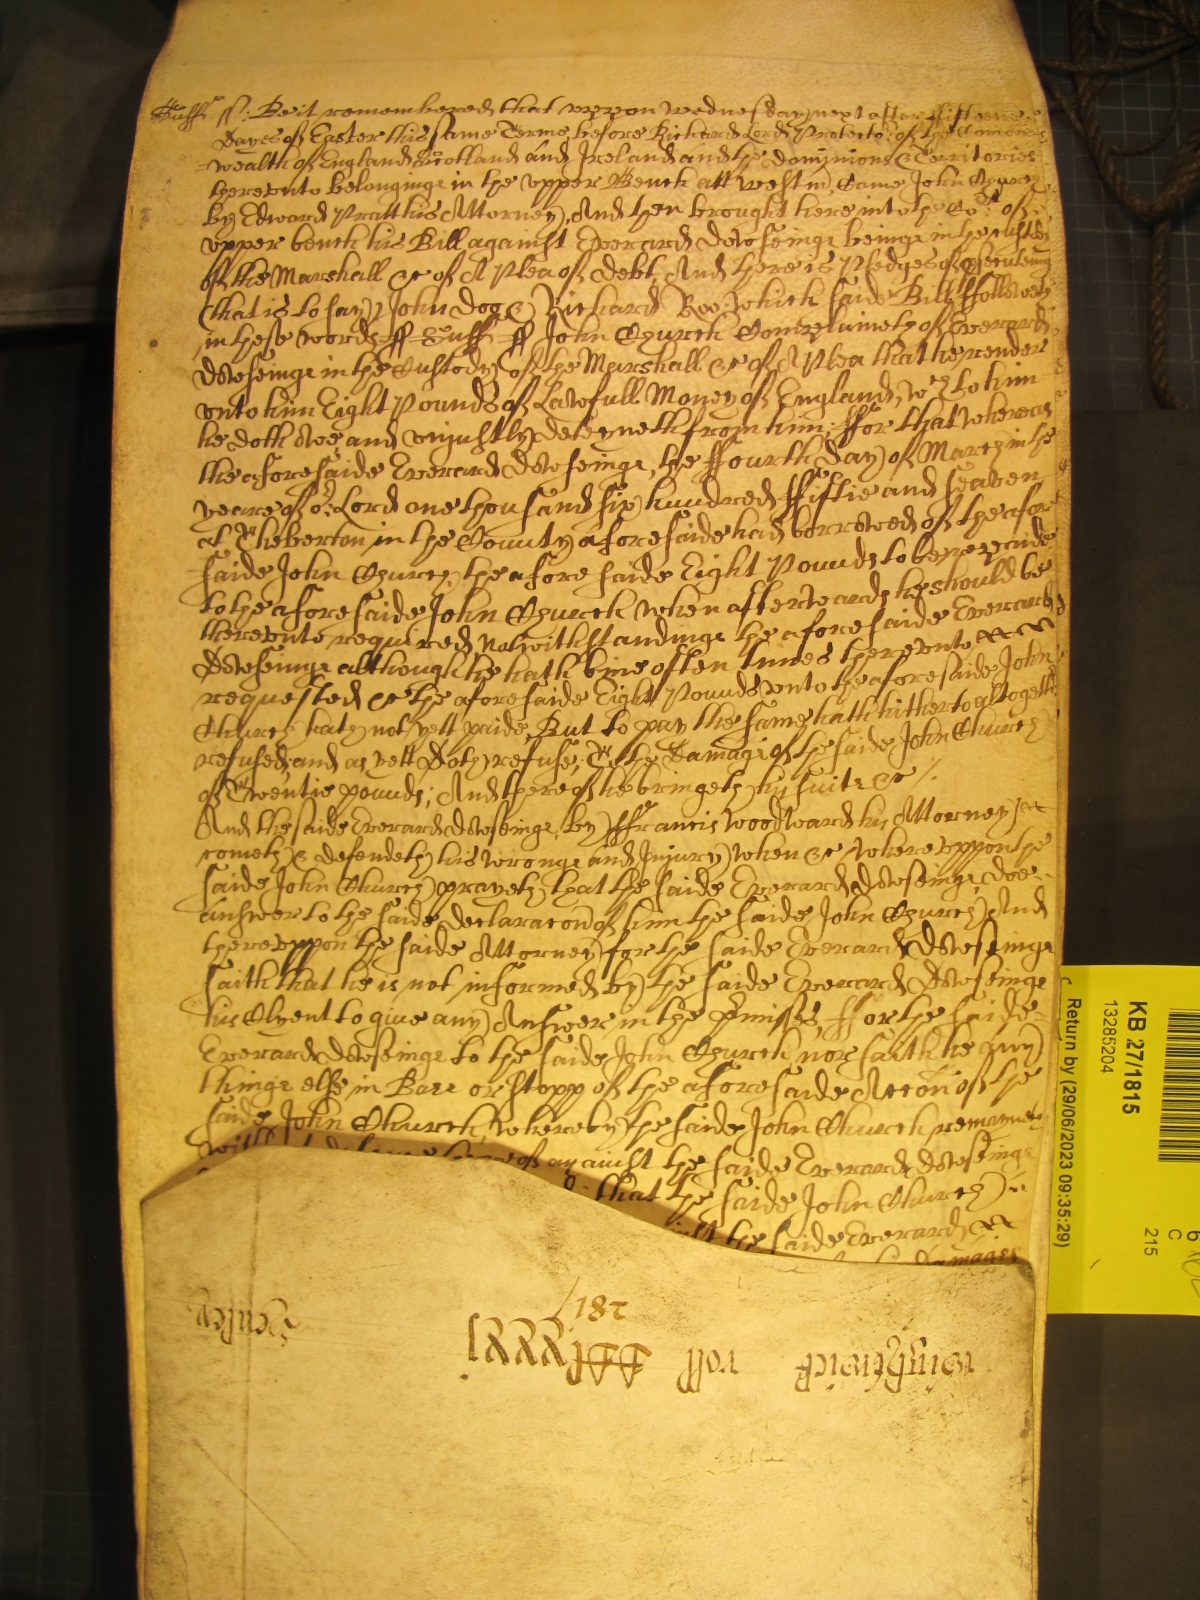 Suff ss: Be it remembered that vppon wednesday next after fifteene
Dayes of Easter this same Terme, before Richard Lord Protector of the Comon
wealth of England Scotland and Ireland and the dominions & Territories
therevnto belonginge in the vpper Bench att westm, Came John Church
by Edward Pratt his Attorney, And then brought here into the Cort of
vpper bench his Bill against Everard Dowseinge beinge in the custodie
of the Marshall &c of A Plea of Debt, And there is Pledges of prsecuteing
(that is to say) John Doe & Richard Roe, which saide Bill ffolloweth
in these words ss Suff ss John Church Complaineth of Everard
Dowseinge in the Custody of the Marshall &c of A Plea that he render
vnto him Eight Pounds of Lawfull Money of England, wch to him
he doth owe and vniustly deteyneth from him: ffor that whereas
the aforesaide Everard Dowseinge, the ffourth Day of March in the
yeare of or Lord one thousand six hundred ffiftie and seaven
at Theberton in the County aforesaide had borrowed of the afor
saide John Church, the aforesaide Eight Pounds to be repaide
to the aforesaide John Church when afterwards he should be
therevnto required, Notwithstandinge the aforesaide Everard
Dowseinge although he hath bine often times therevnto
requested &c the aforesaide Eight Pounds vnto the aforesaide John
Church hath not yett paide, But to pay the same hath hitherto altogether
refused, and as yett Doth refuse, To the Damage of the saide John Church
of Twentie pounds; And thereof he bringeth his suite &c
And the saide Everard Dowseinge, by ffrancis Woodward his Attorney
cometh & defendeth his wronge and Iniury when &c wherevppon the
saide John Church prayeth that the saide Everard Dowseinge, doe
answer to the saide declaracon of him the saide John Church, And
therevppon the saide Attorney for the saide Everard Dowseinge
saith that he is not informed by the saide Everard Dowseinge
his Clyent to give any Answer in the Prmisses, ffor the saide
Everard Dowseinge to the saide John Church nor saith he any
thinge else in Barr or stopp of the aforesaide Accon of the
saide John Church, whereby the saide John Church remaineth
with defence thereof against the saide Everard Dowseinge
that the saide John Church
the saide Everard
Damages
KB 27/1815
13285204
Return by (29/06/2023 09:35:29)
215
C
187
roll